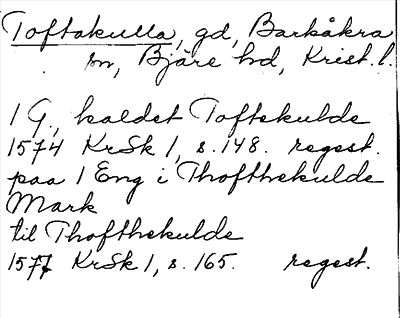 Toftakulla, gd, Barkåkra
sn, Bjäre hd, Krist. l.
1 G., kaldet Toftekulde
1574 KrSk 1, s. 148. regest.
paa 1 Eng i Thofthekulde
Mark
til Thofthekulde
1577 KrSk 1, s. 165. regest.